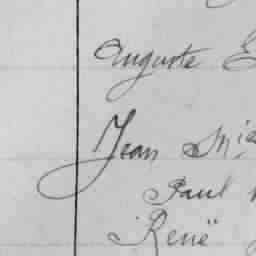 Auguste
Jean
Paul
René